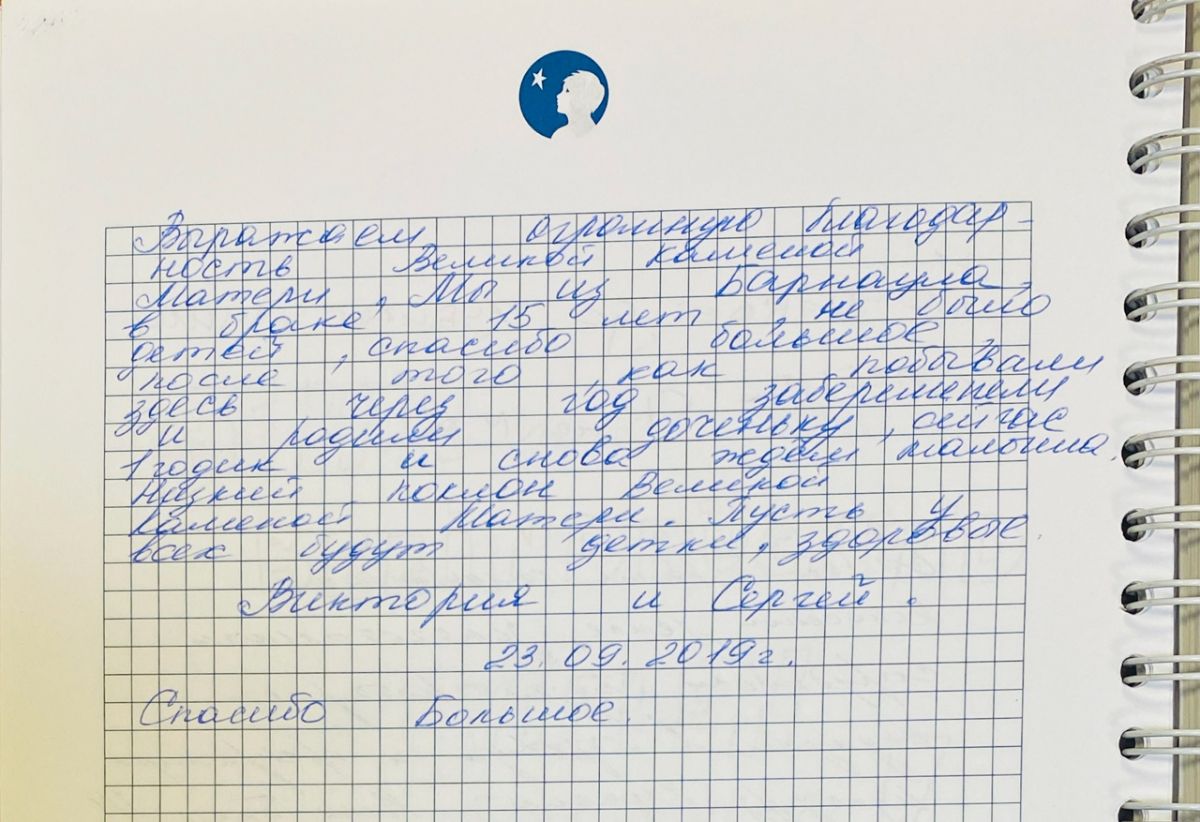 Выражаем огромную благодар-
ность Великой каменой
Матери, Мы из Барнаула,
в браке 15 лет не было
детей, спасибо большое,
после того, как побывали
здесь через год забеременели
и родили доченьку, сейчас
1 годик и снова ждём малыша.
Низкий поклон Великой
каменой Матери. Пусть у
всех будут детки, здоровые.
Виктория и Сергей.
23.09.2019г.
Спасибо Большое.